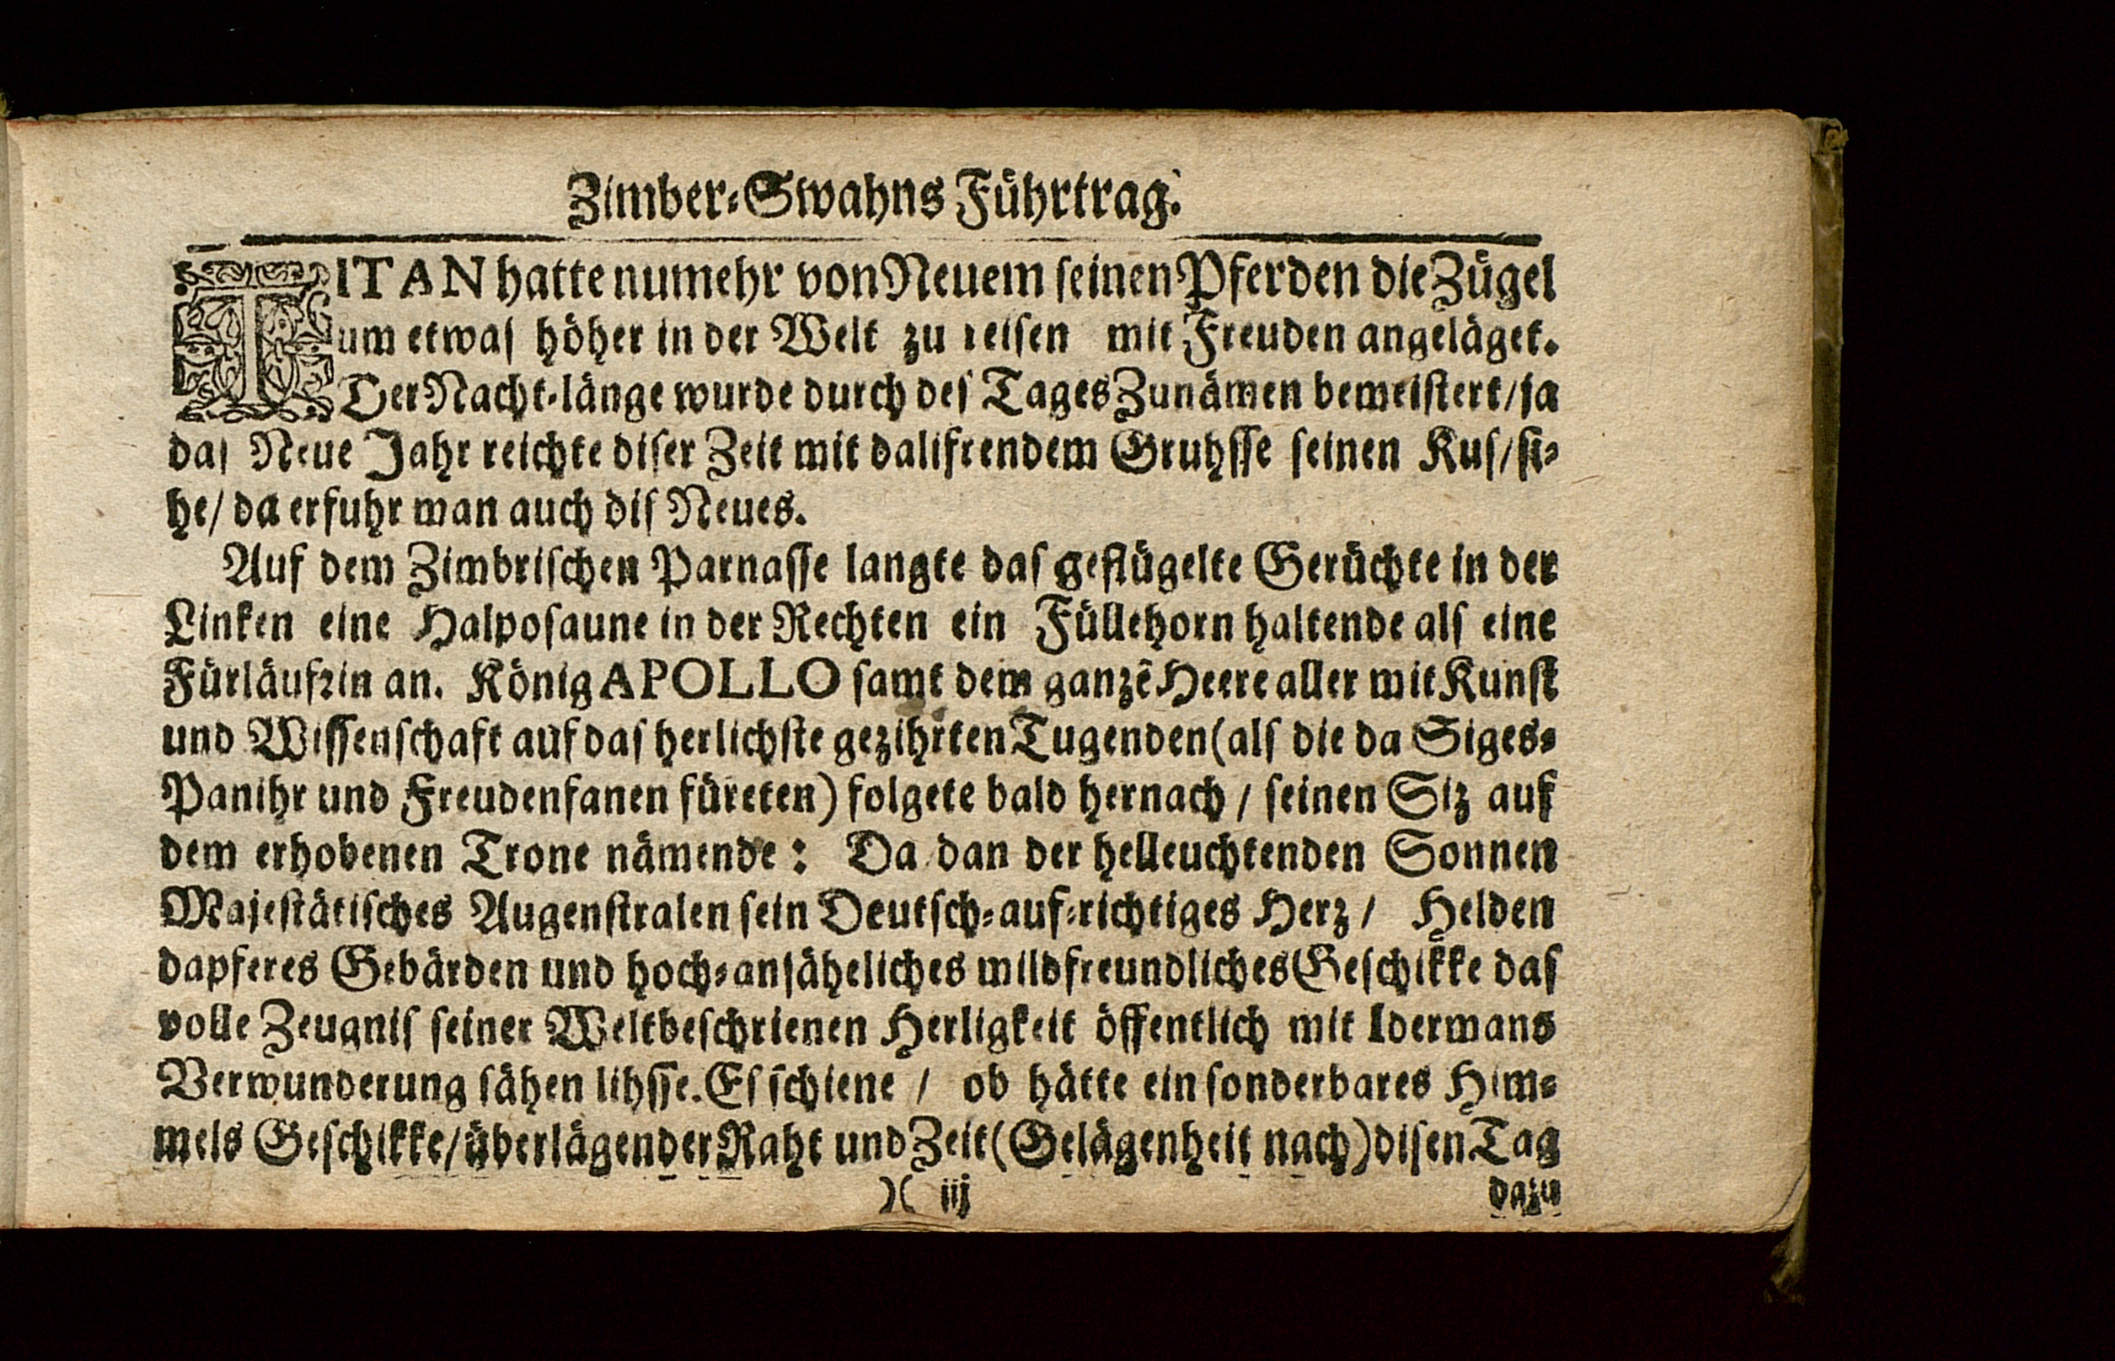 Zimber-Swahns Führtrag.
TITAN hatte numehr von Neuem seinen Pferden die Zügel
um etwas höher in der Welt zu reisen mit Freuden angeläget.
Der Nacht-länge wurde durch des Tages Zunämen bemeistert/ja
das Neue Jahr reichte diser Zeit mit dalifrendem Gruhsse seinen Kus/si-
he/da erfuhr man auch dis Neues.
Auf dem Zimbrischen Parnasse langte das geflügelte Gerüchte in der
Linken eine Halposaune in der Rechten ein Füllehorn haltende als eine
Fürläufrin an. König APOLLO samt dem ganzē Heere aller mit Kunst
und Wissenschaft auf das herlichste gezihrten Tugenden (als die da Siges-
Panihr und Freudenfanen füreten) folgete bald hernach / seinen Siz auf
dem erhobenen Trone nämende: Da dan der helleuchtenden Sonnen
Majestätisches Augenstralen sein Deutsch-auf-richtiges Herz / Helden
dapferes Gebärden und hoch-ansäheliches mildfreundliches Geschikke das
volle Zeugnis seiner Weltbeschrienen Herligkeit öffentlich mit Idermans
Verwunderung sähen lihsse. Es schiene / ob hätte ein sonderbares Him-
mels Geschikke/überlägender Raht und Zeit (Gelägenheit nach) disen Tag
)( iij dazu